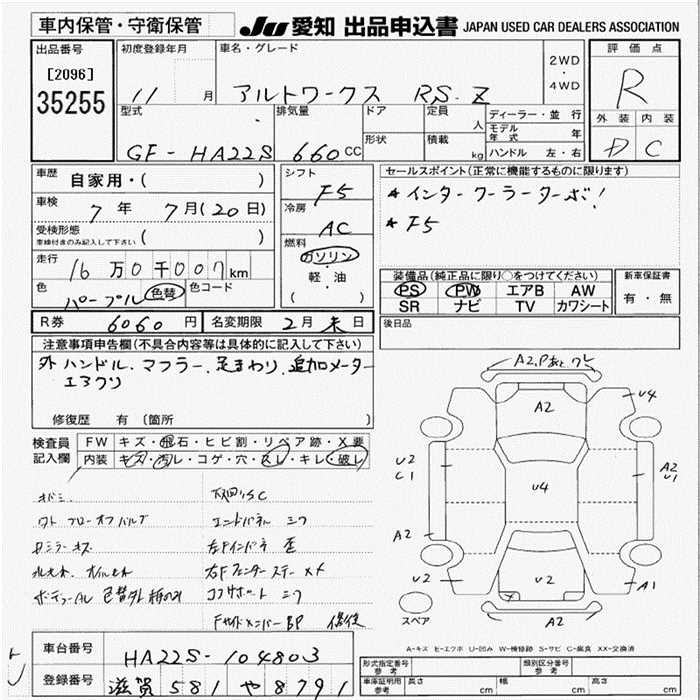 車内保管・守衛保管
JU 愛知 出品申込書 JAPAN USED CAR DEALERS ASSOCIATION
出品番号
[2096]
35255
初度登録年月
11 月
車名・グレード
アルトワークス RS-Z
2WD
・
4WD
評価点
R
外装 内装
D C
型式
GF-HA22S
排気量
660 CC
ドア
形状
定員
人
積載
kg
ディーラー・並行
モデル年式 年
ハンドル 左・右
車歴
自家用・( )
車検
7年 7月(20日)
受検形態
車検付きのみ記入して下さい ( )
走行
16万0千007km
色
パープル 色替
色コード
シフト
F5
冷房
AC
燃料
ガソリン
・
軽・油
( )
セールスポイント(正常に機能するものに限ります)
* インタークーラーターボ!
* F5
装備品(純正品に限り○をつけてください)
PS PW エアB AW
SR ナビ TV カワシート
新車保証書
有・無
R券 6060円
名変期限 2月末日
後日品
注意事項申告欄(不具合内容等は具体的に記入して下さい)
外 ハンドル.マフラー.足まわり.追加メーター
エアクリ
修復歴 有(箇所 )
検査員記入欄
FW キズ・飛石・ヒビ割・リペア跡・X要
内装 キズ・汚レ・コゲ・穴・スレ・キレ・破レ
社外ブローオフバルブ
エンドパネル
左Fインパネ 歪
右Fフェンダーステー
コアサポート
修復
A2
A2
U4
U4
U2
C1
A2
U1
A2
U2
U2
A1
A2
スペア
A-キズ E-エクボ U-凹み W-補修跡 S-サビ C-腐食 XX-交換済
車台番号 HA22S-104803
登録番号 滋賀 581 や 8791
形式指定番号 参考
類別区分番号 参考
車庫証明用 参考
長さ cm
幅 cm
高さ cm